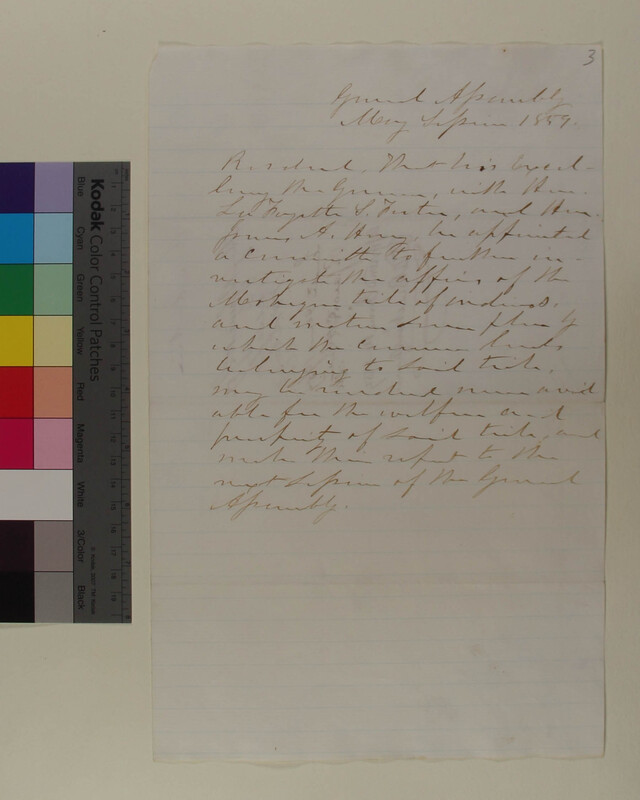 3
General Assembly
May Session 1859.
Resolved, That his Excel-
lency the Governor, with Hon.
Lafayette S. Foster, and Hon.
James A. Hovey, be appointed
a Committee to further in-
vestigate the affairs of the
Mohegan tribe of indians,
and mature some plan by
which the common lands
belonging to said tribe,
may be rendered more avail-
able for the welfare and
prosperity of said tribe, and
make their report to the
next Session of the General
Assembly.
Kodak Color Control Patches
Blue
Cyan
Green
Yellow
Red
Magenta
White
3/Color
Black